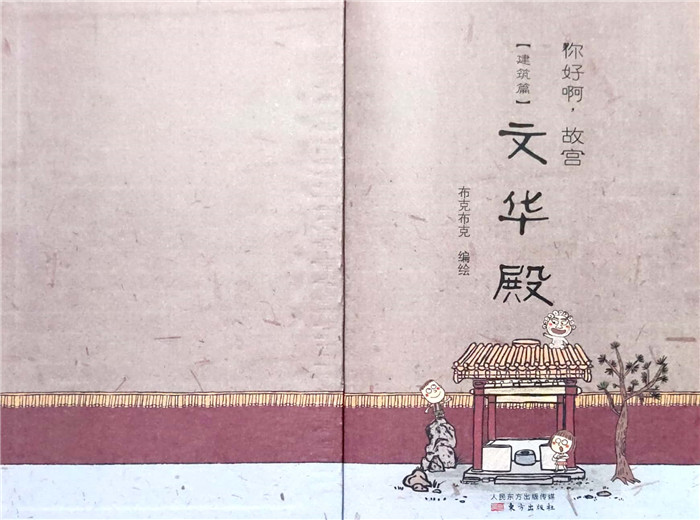 你好啊，故宫
【建筑篇】
文华殿
布克布克 编绘
人民东方出版传媒
东方出版社